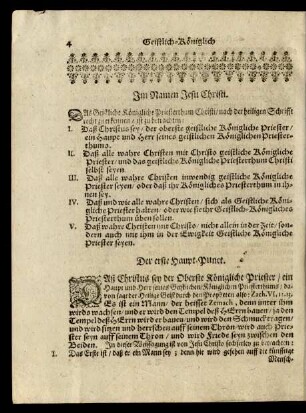 4
Geistlich-Königlich
Im Namen Jesu Christi.
Das Geistliche Königliche Priesterthum Christi / nach der heiligen Schrifft
recht zu erkennen / ist zu betrachten:
I. Daß Christus sey / der oberste geistliche Königliche Priester /
ein Haupt und Herr seines geistlichen Königlichen Priester-
thums.
II. Daß alle wahre Christen mit Christo geistliche Königliche
Priester / und das geistliche Königliche Priesterthum Christi
selbst seyen.
III. Daß alle wahre Christen inwendig geistliche Königliche
Priester seyen / oder daß ihr Königliches Priesterthum in ih-
nen sey.
IV. Daß und wie alle wahre Christen / sich als Geistliche König-
liche Priester halten / oder wie sie ihr Geistlich-Königliches
Priesterthum üben sollen.
V. Daß wahre Christen mit Christo / nicht allein in der Zeit / son-
dern auch mit ihm in der Ewigkeit Geistliche Königliche
Priester seyen.
Der erste Haupt-Punct.
Daß Christus sey der Oberste Königliche Priester / ein
Haupt und Herr seines Geistlichen Königlichen Priesterthums / da-
von sagt der Heilige Geist durch den Propheten also: Zach. VI, 12. 13.
Es ist ein Mann, der heisset Zemach, denn unter ihm
wirds wachsen / und er wird den Tempel deß HErrn bauen / ja den
Tempel deß HErrn wird er bauen / und wird den Schmuck tragen /
und wird sitzen und herrschen auff seinem Thron / wird auch Prie-
ster seyn auff seinem Thron / und wird Friede seyn zwischen den
Beiden. In dieser Weissagung ist von Jesu Christo sechserley zu betrachten:
1. Das Erste ist / daß er ein Mann sey ; denn hie wird gesehen auff die künfftige
Mensch-